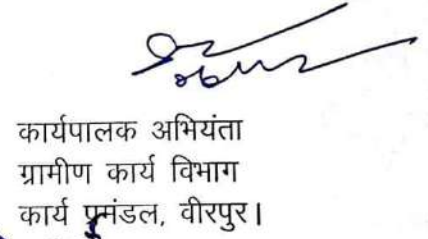 कार्यपालक अभियंता
ग्रामीण कार्य विभाग
कार्य प्रमंडल, वीरपुर।